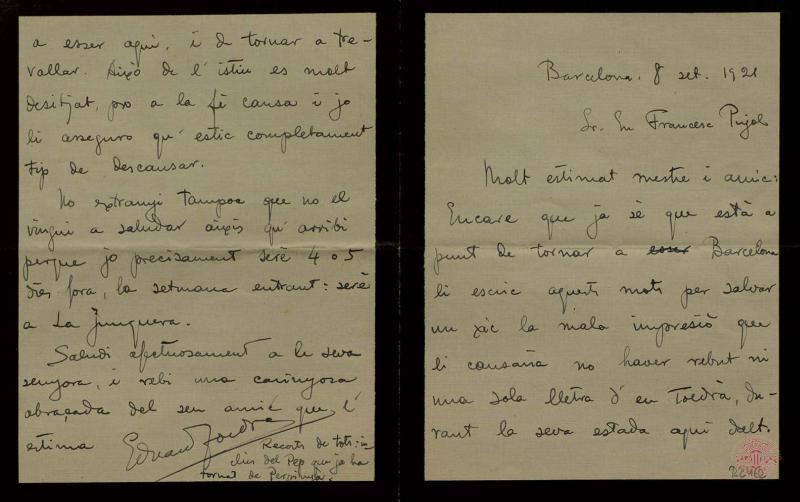 Barcelona, 8 set. 1921
Sr. En Francesc Pujol
Molt estimat mestre i amic:
Encare que ja sè que està a
punt de tornar a esser Barcelona
li escric aquests mots per salvar
un xic la mala impresió que
li causaria no haver rebut ni
una sola lletra d'en Toldrà, du-
rant la seva estada aquí dalt.
a esser aquí, i de tornar a tre-
vallar. Això de l'istiu es molt
desitjat, pro a la fè causa i jo
li asseguro qu'estic completament
tip de descansar.
No extranyi tampoc que no el
vingui a saludar aixìs qu'arribi
perque jo precisament serè 4 o 5
dìes fora, la setmana entrant: serè
a La Junquera.
Saludi afectuosament a la seva
senyora, i rebi una carinyosa
abraçada del seu amic que l'
estima
Eduard Toldrà
Recorts de tots: in-
clús del Pep que ja ha
tornat de